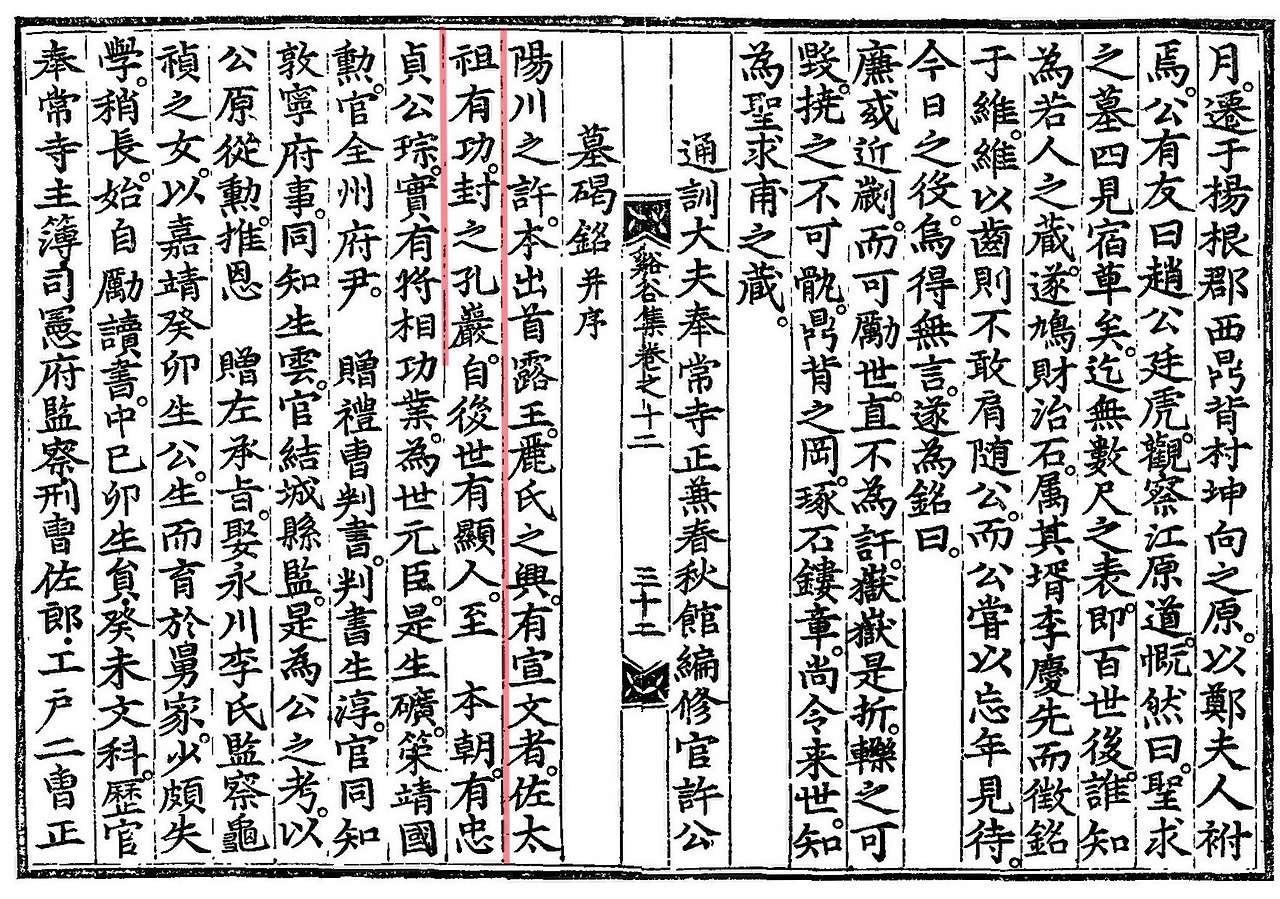 月。遷于揚根郡西鼎背村坤向之原。以鄭夫人祔
焉。公有友曰趙公廷虎。觀察江原道。慨然曰聖求
之墓四見宿草矣。迄無數尺之表。即百世後。誰知
為若人之蔵。遂鳩財治石。属其壻李慶先而徵銘
于維。維以齒則不敢肩随公。而公嘗以忘年見待。
今日之役。烏得無言。遂為銘曰。
廉或近劌。而可勵世。直不為訐。嶽嶽是折。轢之可
毀。撓之不可骫。鼎背之岡。琢石鏤章。尚令来世。知
為聖求甫之蔵。
通訓大夫奉常寺正兼春秋館編修官許公
谿谷集卷之十二
三十二
墓碣銘并序
陽川之許。本出首露王。麗氏之興。有宣文者。佐太
祖有功。封之孔巖。自後世有顯人。至 本朝。有忠
貞公琮。實有将相功業。為世元臣。是生礦。策靖國
勳。官全州府尹。 贈禮曹判書。判書生淳。官同知
敦寧府事。同知生雲。官結城縣監。是為公之考。以
公原從勳。推恩 贈左承旨。娶永川李氏監察龜
禎之女。以嘉靖癸卯生公。生而育於舅家。少頗失
學。稍長。始自勵讀書。中己卯生員癸未文科。歷官
奉常寺主簿,司憲府監察,刑曹佐郎·工戶二曹正